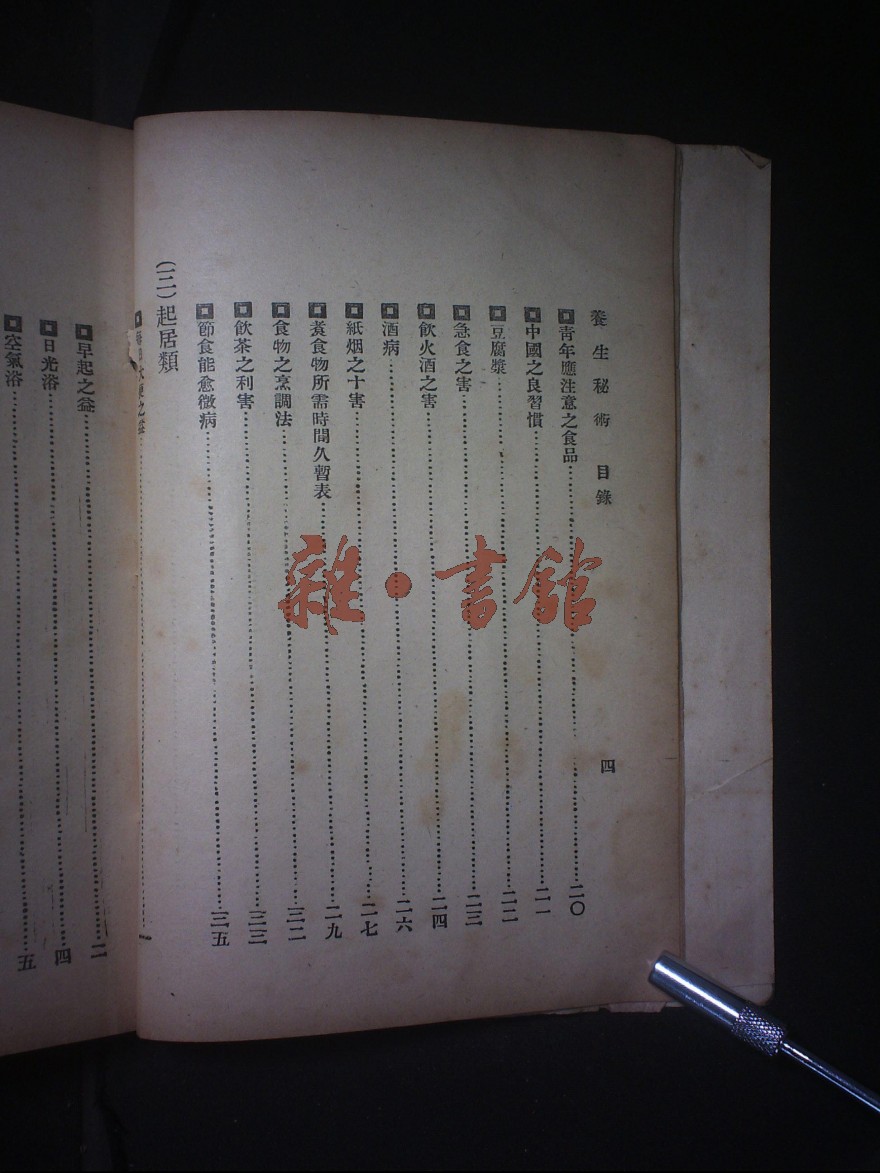 養生秘術 目錄 四
青年應注意之食品 二〇
中國之良習慣 二一
豆腐漿 二二
急食之害 二三
飲火酒之害 二四
酒病 二六
紙烟之十害 二七
煮食物所需時間久暫表 二九
食物之烹調法 三二
飲茶之利害 三三
節食能愈微病 三五
(三)起居類
大便之益 一
早起之益 二
日光浴 四
空氣浴 五
雜·書館